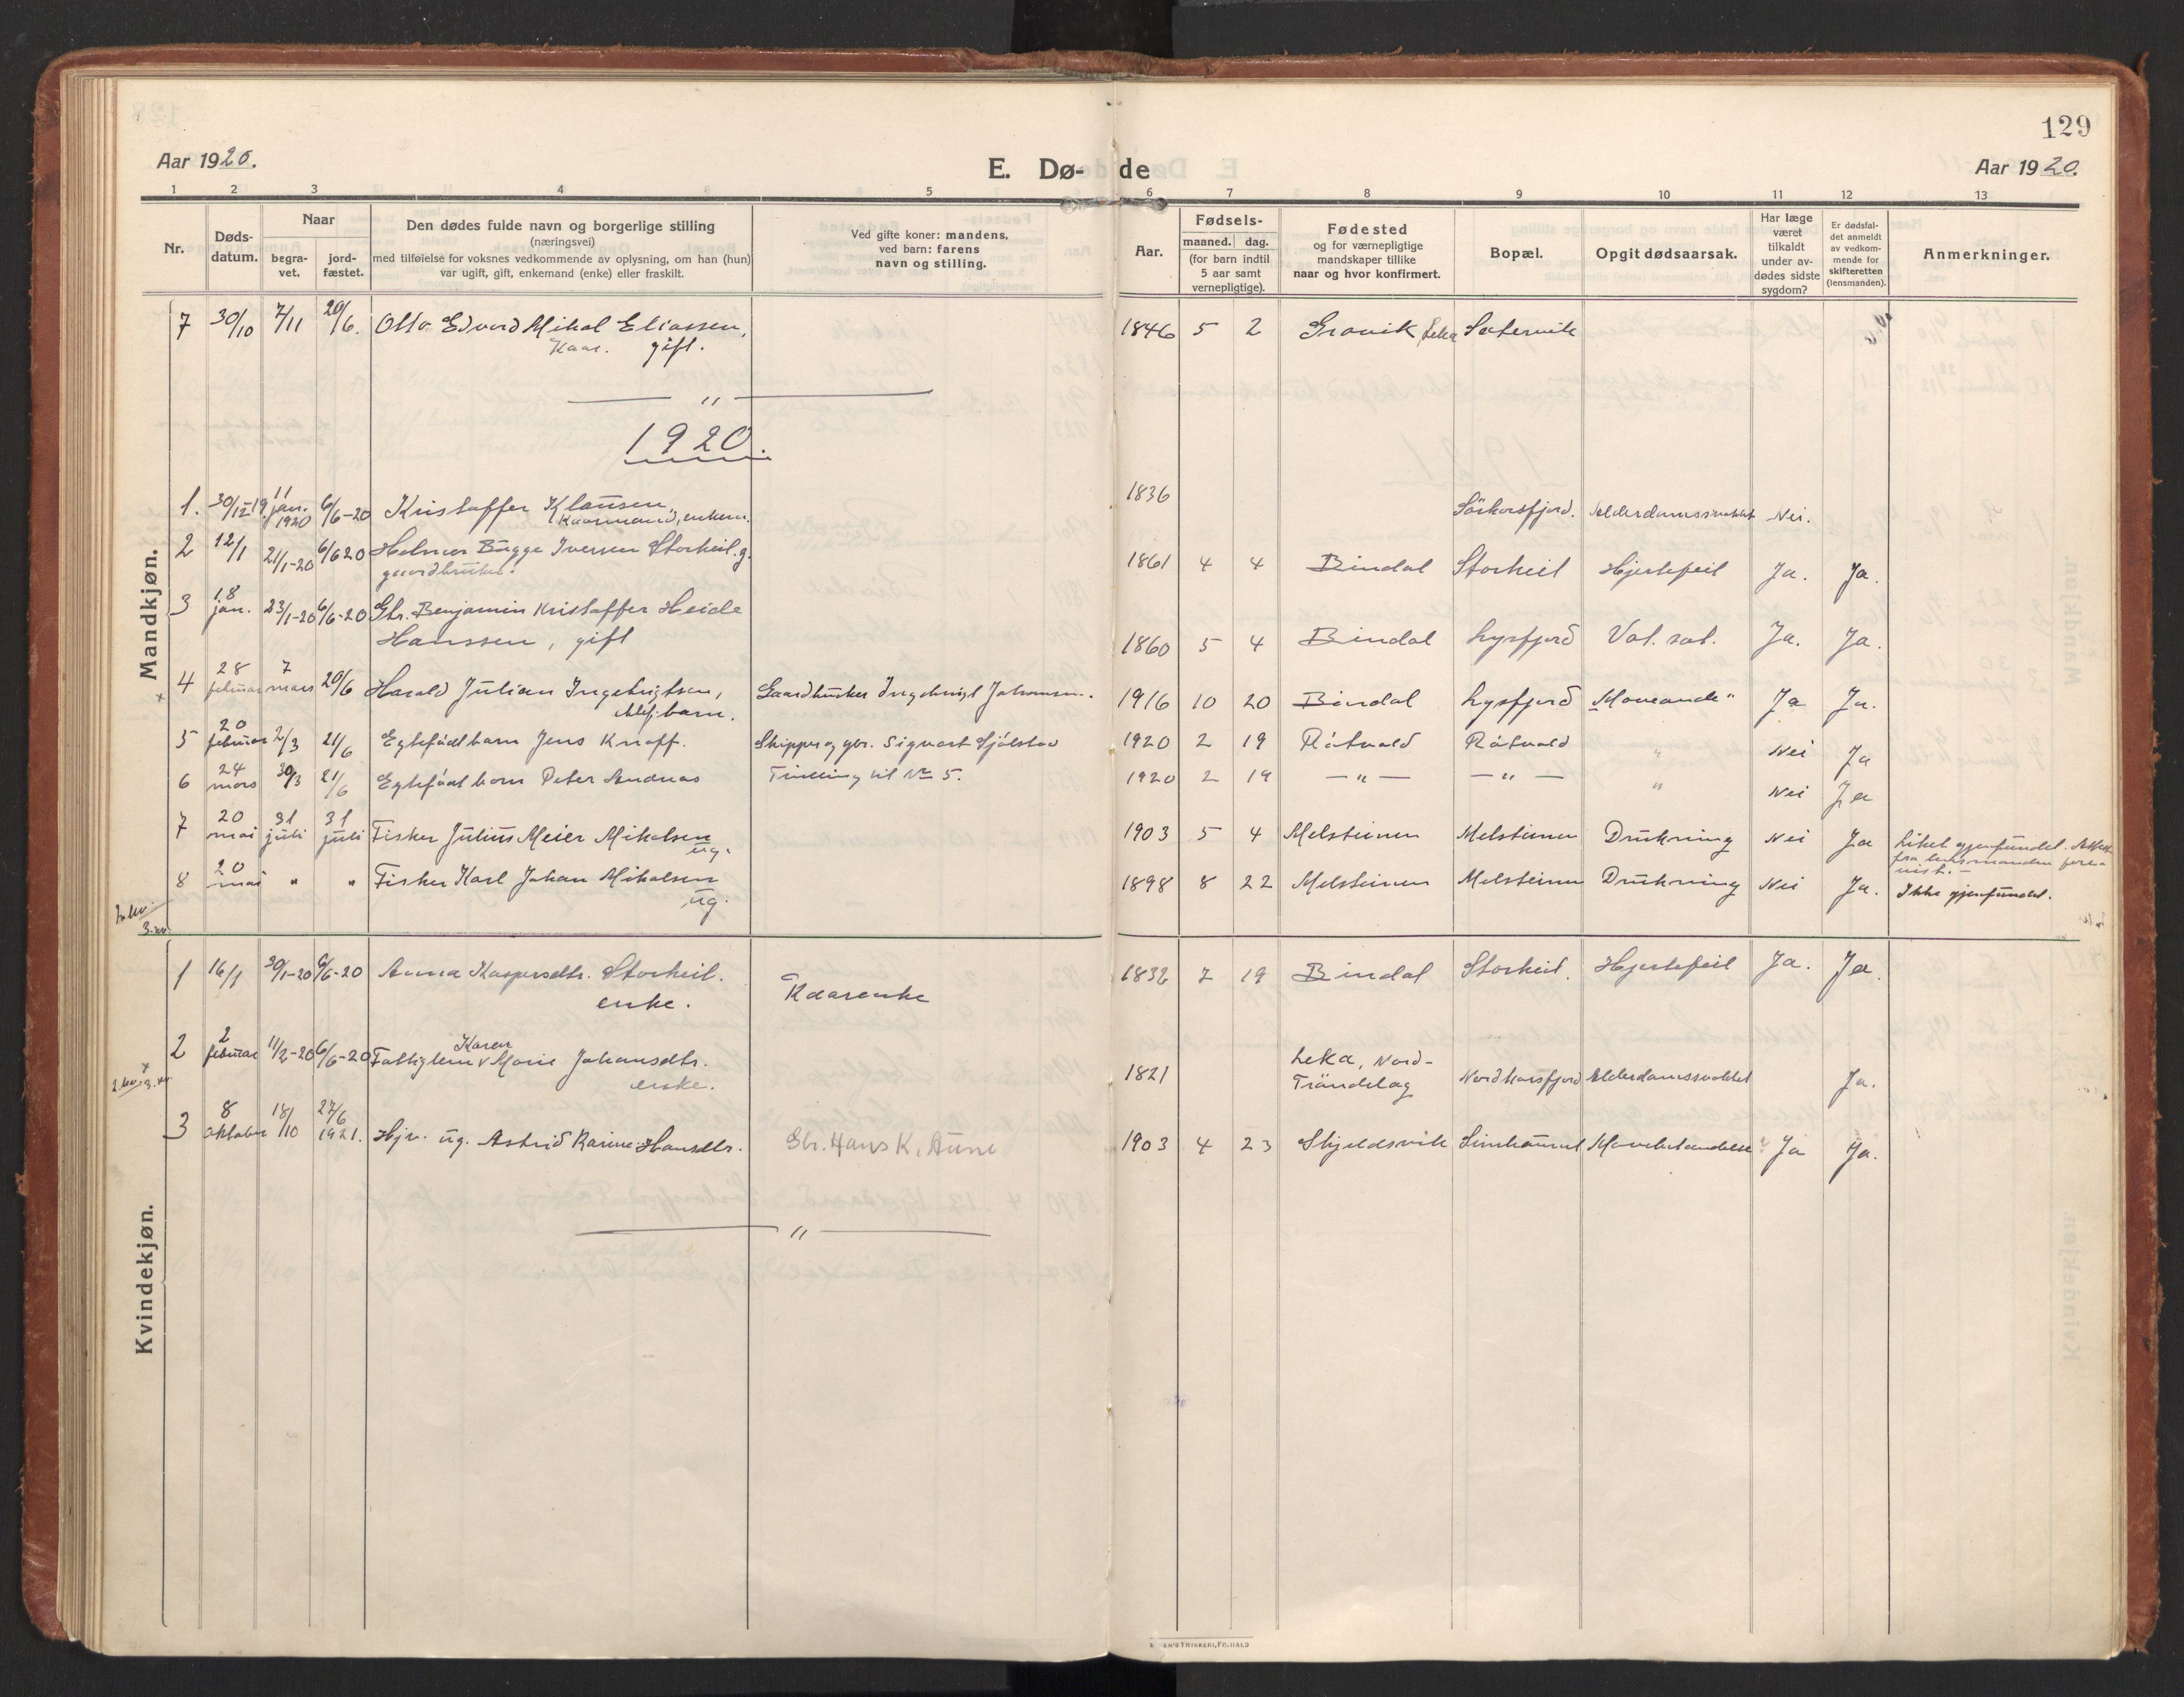 129
Aar 1920.
E. Dø-de
Aar 1920.
1 2 3 4 5 6 7 8 9 10 11 12 13
Nr.
Døds-
datum.
Naar
begra-
vet.
jord-
fæstet.
Den dødes fulde navn og borgerlige stilling
(næringsvei)
med tilføielse for voksnes vedkommende av oplysning, om han (hun)
var ugift, gift, enkemand (enke) eller fraskilt.
Ved gifte koner: mandens,
ved barn: farens
navn og stilling.
Aar.
Fødsels-
maaned. dag.
(for barn indtil
5 aar samt
vernepligtige).
Fødested
og for værnepligtige
mandskaper tillike
naar og hvor konfirmert.
Bopæl.
Opgit dødsaarsak.
Har læge
været
tilkaldt
under av-
dødes sidste
sygdom?
Er dødsfal-
det anmeldt
av vedkom-
mende for
skifteretten
(lensmanden).
Anmerkninger.
Mandkjøn.
7 30/10 7/11 20/6. Otto Edvard Mikal Eliassen, 1846 5 2 Gravik, Leka Satervik
Kaar. gift.
— " —
1920.
1. 30/12 19 11 jan. 1920 6/6-20 Kristaffer Klausen, 1836 Sörhorsfjord. Alderdamssvakhet Nei.
Kaarmand, enkem.
2 12/1 21/1-20 6/6 20 Helmer Bugge Iversen Storheil. g. 1861 4 4 Bindal Storheil Hjertefeil Ja. Ja.
gaardbruker.
3 18 jan. 23/1-20 6/6-20 Gbr. Benjamin Kristaffer Heide
Hanssen, gift 1860 5 4 Bindal Lysfjord Ja. Ja.
4 28 februar 7 mars 20/6 Harald Julian Ingebrigtsen, Gaardbruker Ingebrigt Johansen. 1916 10 20 Bindal Lysfjord Ja Ja.
barn.
5 20 februar 2/3 21/6 Egtefödt barn Jens Knoff. Skipper og gbr. Sigvart Sjölstad 1920 2 19 Råtvald Råtvald " Nei Ja
6 24 mars 30/3 21/6 Egtefödt barn Peter Andreas Tvilling til No 5. 1920 2 19 — " — — " — " Nei Ja
7 20 mai 31 juli 31 juli Fisker Julius Meier Mikalsen 1903 5 4 Melsteinen Melsteinen Drukning Nei Ja Liket gjenfundet. Attest
ug. fra lensmanden fore-
vist.—
8 20 mai " " Fisker Karl Johan Mikalsen 1898 8 22 Melsteinen Melsteinen Drukning Nei Ja. Ikke gjenfundet.
ug.
3. kv.
Kvindekjøn.
1 16/1 30/1-20 6/6-20 Anna Kaspersdtr. Storheil. Kaarenke 1832 7 19 Bindal Storheil. Hjertefeil Ja. Ja.
enke.
2 2 februar 11/2-20 6/6-20 Fattiglem v Karen Marie Johansdtr. 1821 Leka, Nord-
Tröndelag Nordhorsfjord Alderdamssvakhet Ja.
enke.
2. kv. 3. kv.
3 8 oktober 18/10 27/6 1921. Hjv. ug. Astrid Karine Hansdtr. Gbr. Hans K. Aune 1903 4 23 Skjeldsvik Simhamul Ja Ja.
— " —
TRYKKERI, FR. HALD